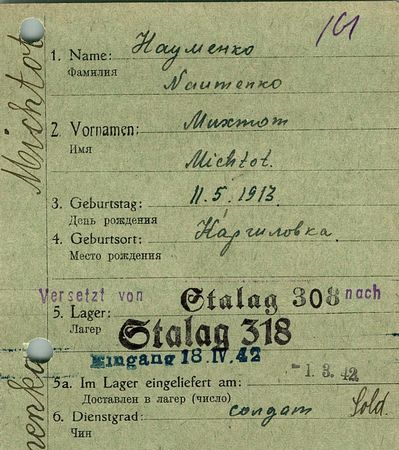 161
1. Name: Науменко
Фамилия
Naumenko
2. Vornamen: Михтот
Имя
Michtot.
3. Geburtstag: 11.5.1913
День рождения
4. Geburtsort: Каргиловка.
Место рождения
Versetzt von Stalag 308 nach
5. Lager: Stalag 318
Лагер
Eingang 18.IV.42
5a. Im Lager eingeliefert am: -1.3.42
Доставлен в лагер (число)
6. Dienstgrad: солдат Sold.
Чин
Michtot